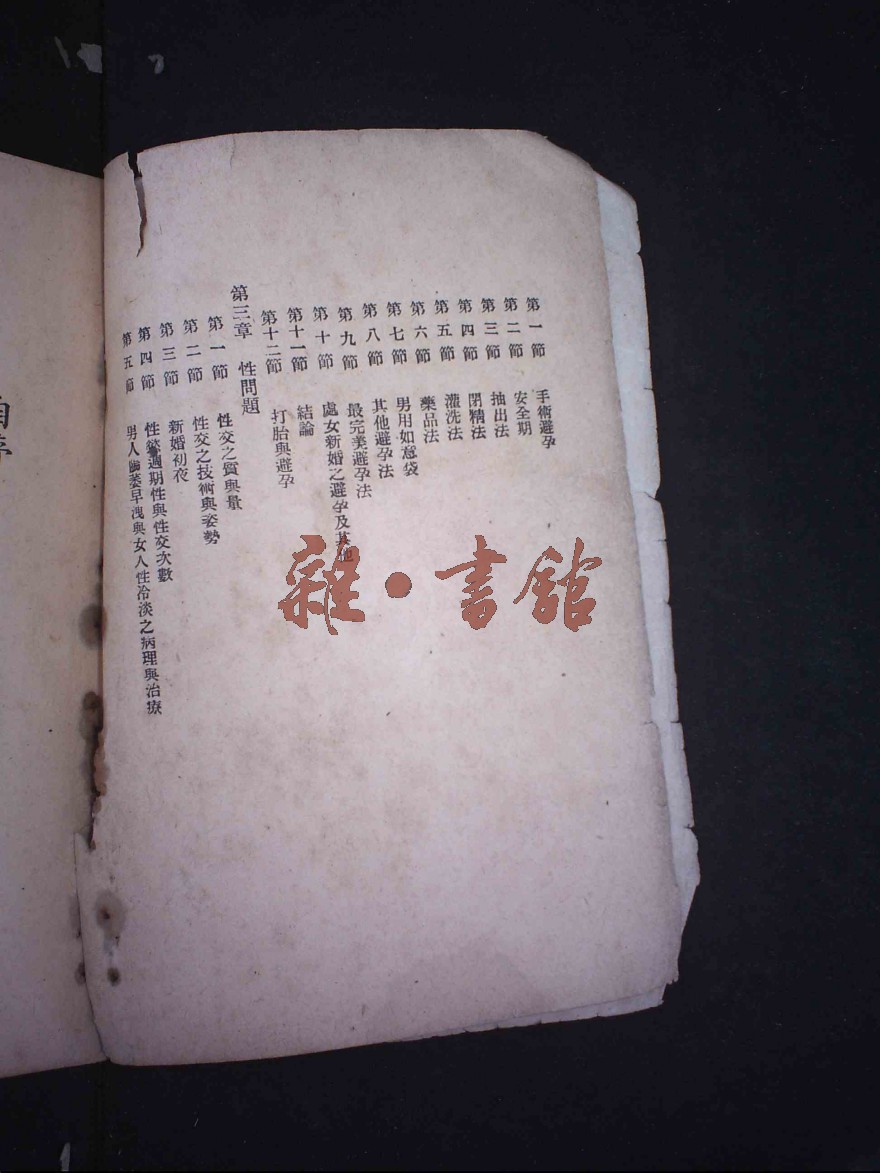 第一節 手術避孕
第二節 安全期
第三節 抽出法
第四節 閉精法
第五節 灌洗法
第六節 藥品法
第七節 男用如意袋
第八節 其他避孕法
第九節 最完美避孕法
第十節 處女新婚之避孕及其他
第十一節 結論
第十二節 打胎與避孕
第三章 性問題
第一節 性交之質與量
第二節 性交之技術與姿勢
第三節 新婚初夜
第四節 性慾週期性與性交次數
第五節 男人陽萎早洩與女人性冷淡之病理與治療
雜·書館